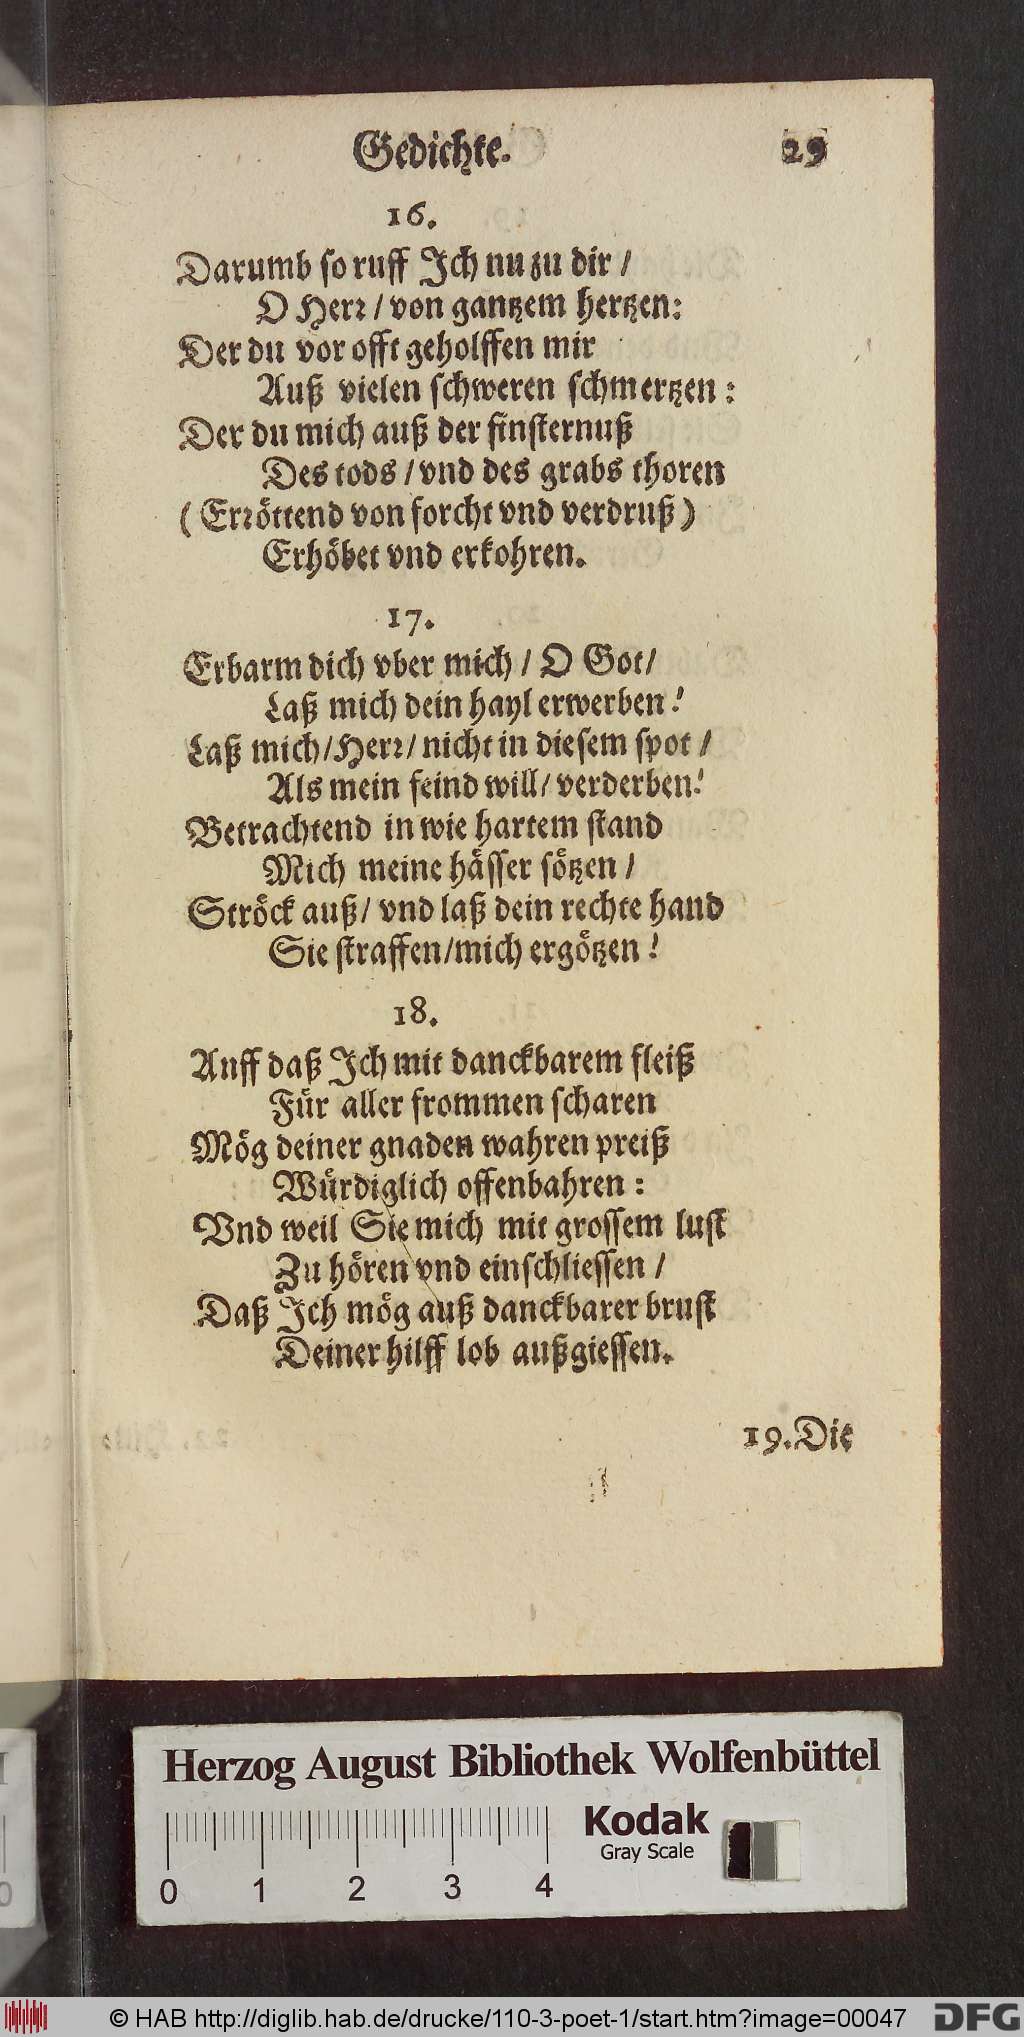 Gedichte. 29
16.
Darumb so ruff Ich nu zu dir /
O Herr / von gantzem hertzen:
Der du vor offt geholffen mir
Auß vielen schweren schmertzen :
Der du mich auß der finsternuß
Des tods / vnd des grabs thoren
( Erröttend von forcht vnd verdruß )
Erhöbet vnd erkohren.
17.
Erbarm dich vber mich / O Got /
Laß mich dein hayl erwerben !
Laß mich / Herr / nicht in diesem spot /
Als mein feind will / verderben!
Betrachtend in wie hartem stand
Mich meine hässer sötzen /
Ströck auß / vnd laß dein rechte hand
Sie straffen / mich ergötzen !
18.
Auff daß Ich mit danckbarem fleiß
Für aller frommen scharen
Mög deiner gnaden wahren preiß
Würdiglich offenbahren :
Vnd weil Sie mich mit grossem lust
Zu hören vnd einschliessen /
Daß Ich mög auß danckbarer brust
Deiner hilff lob außgiessen.
19. Die
Herzog August Bibliothek Wolfenbüttel
Kodak
Gray Scale
0 1 2 3 4
© HAB http://diglib.hab.de/drucke/110-3-poet-1/start.htm?image=00047
DFG